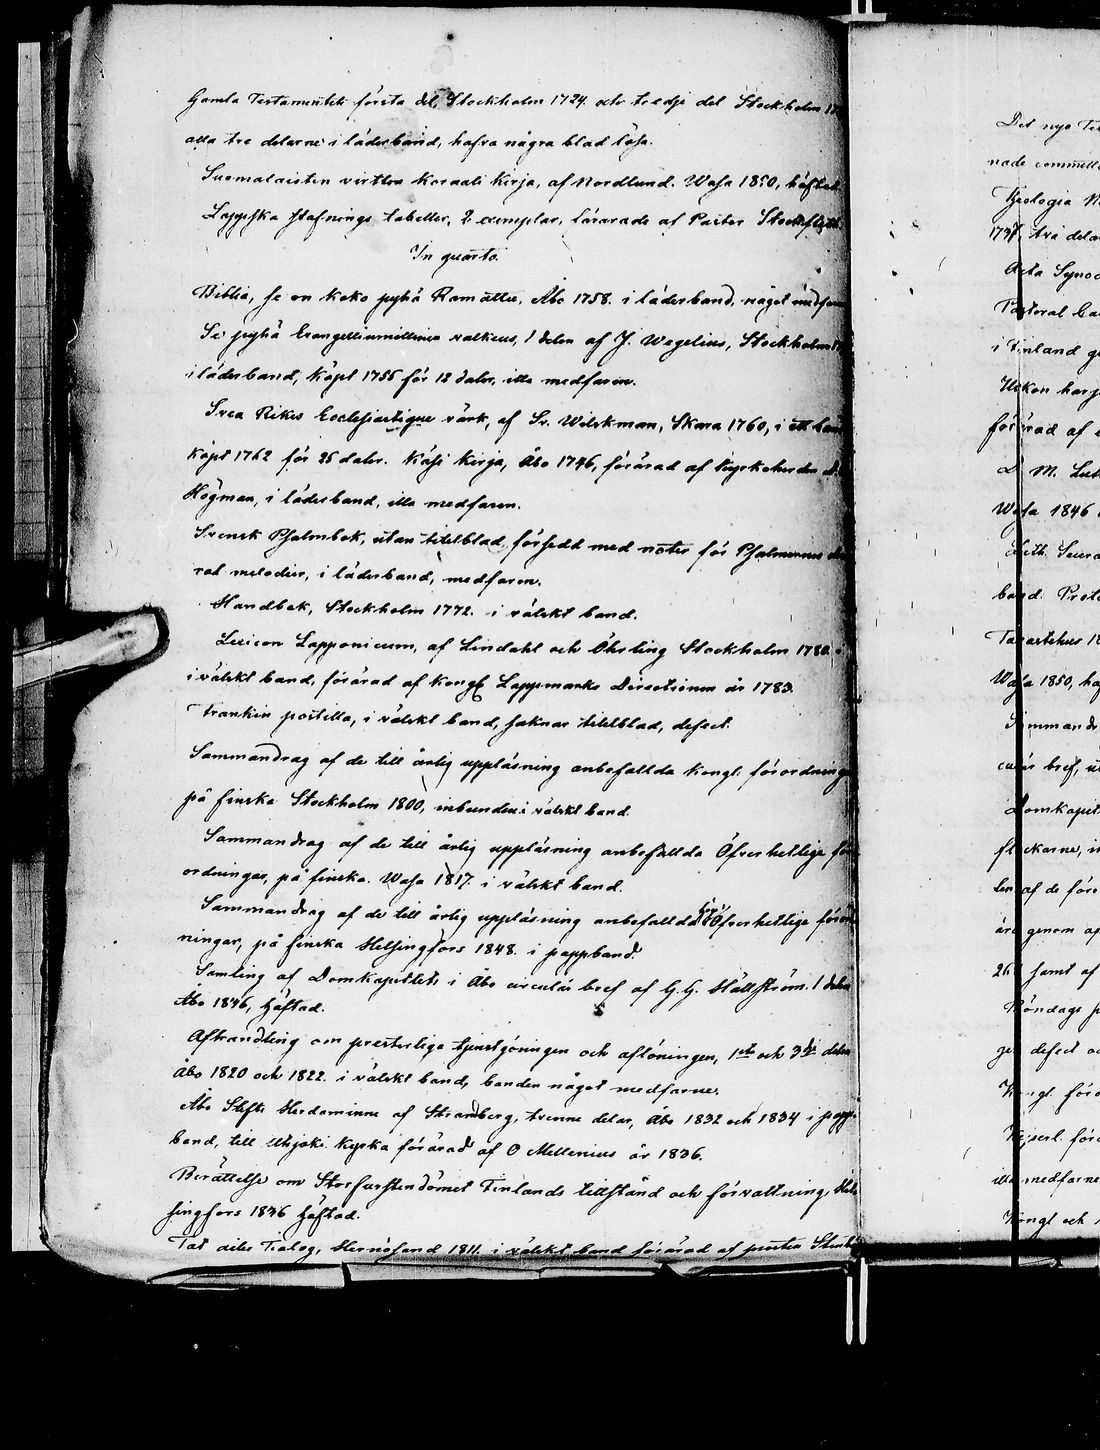 Gamla Testamentets första del, Stockholm 1724. och tredje del Stockholm
alla tre delarne i läderband, hafva några blad lösa.
Suomalaisten virtten koraali kirja, af Nordlund. Wasa 1850, häftad.
Lappska stafnings tabeller, 2 exemplar, förärade af Pastor Stockfleth.
In quarto.
Biblia, se on koko pyhä Ramattu, Åbo 1758. i läderband, något medfaren
Se pyhä Evangeliumillinen valkeus, 1 delen af J. Wegelius, Stockholm
i läderband, köpt 1755 för 12 daler, illa medfaren.
Svea Rikes Ecclesiastique värk, af Sv. Wilskman, Skara 1760, i ett band
köpt 1762 för 25 daler. Käsi kirja, Åbo 1746, förärad af kyrkoherden
Högman, i läderband, illa medfaren.
Svensk Psalmbok, utan titelblad, försedd med noter för Psalmernes
ral melodier, i läderband, medfaren.
Handbok, Stockholm 1772. i välskt band.
Lexicon Lapponicum, af Lindahl och Öhrling Stockholm 1780
i välskt band, förärad af Kongl Lappmarks Directionen år 1783.
Franken postilla, i välskt band, saknar titelblad, defect.
Sammandrag af de till årlig uppläsning anbefallda Kongl. förordningar
på finska Stockholm 1800, inbunden i välskt band.
Sammandrag af de till årlig uppläsning anbefallda Öfverhetlige för
ordningar, på finska. Wasa 1817. i välskt band.
Sammandrag af de till årlig uppläsning anbefallda Öfverhetlige föror
ningar, på finska Helsingfors 1848. i pappband.
Samling af Domkapitlets i Åbo circulär bref af G.G. Hällström. 1 delen
Åbo 1846, häftad.
Afhandling om presterliga tjenstgöringen och aflöningen, 1ste och 3dje delen
Åbo 1820 och 1822. i välskt band, banden något medfarne.
Åbo Stifts Herdaminne af Strandberg, tvenne delar, Åbo 1832 och 1834 i papp
band, till Utsjoki kyrka förärad af O Mellenius år 1836.
Berättelse om Storfurstendömet Finlands tillstånd och förvaltning, Hel
singfors 1846 häftad.
Tat ailes Tialog, Hernösand 1811. i välskt band förärad af pastor
Det nya
nade
Theologia
två delar
Acta Synod
Pastoral
i Finland
Uskon harj
förärad af
D M.
Wasa 1846
band.
Tavastehus
Wasa 1850,
Sammandr
bref,
Domkapit
af de för
genom
26 samt af
defect
Kongl. föro
Kejserl. föro
illa medfarne
Kongl och